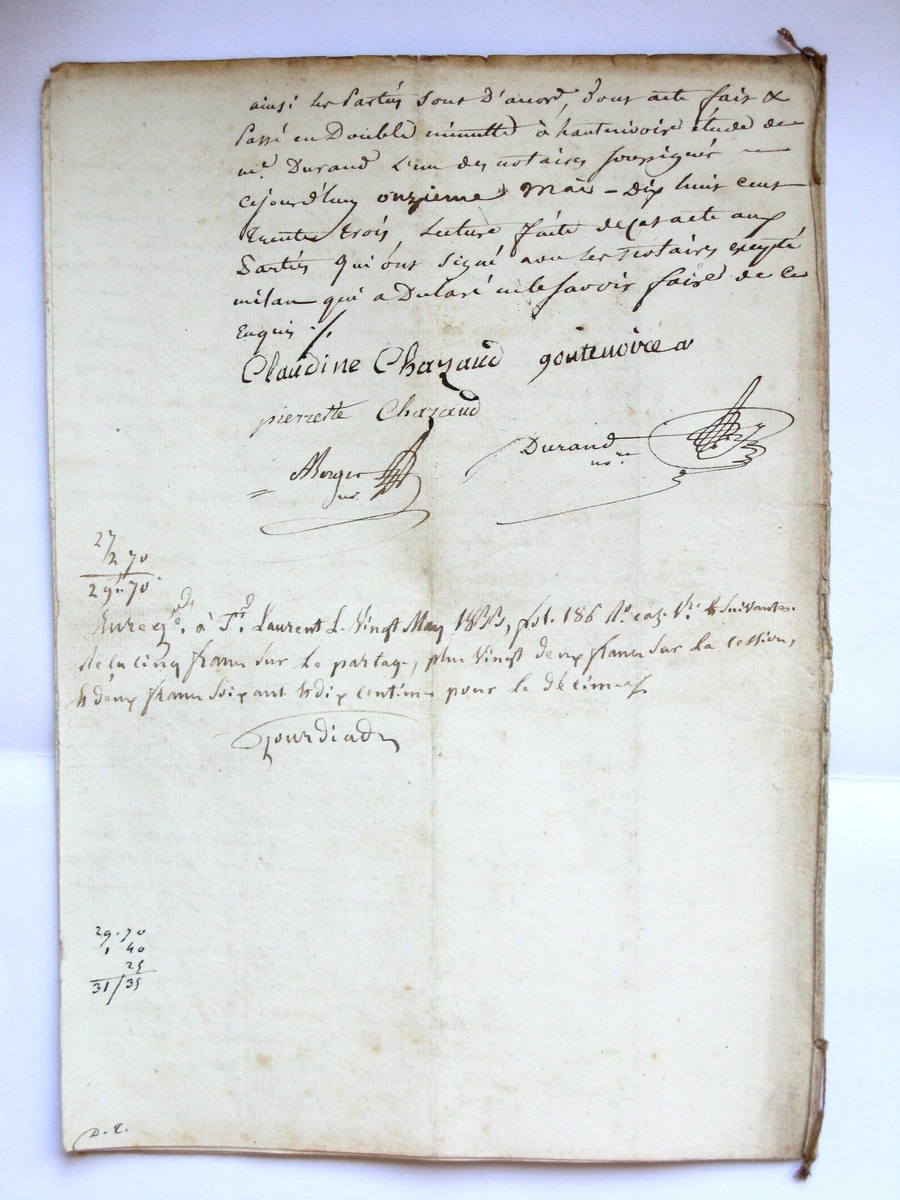 ainsi les Parties sont D'accord, Dont acte fait &
Passé en Double minutte à hauterivoire étude de
me. Durand L'un des notaires soussignés
cejourd'huy onzieme Mai - Dix huit cent
trente trois Lecture faite de cet acte aux
Parties qui ont signé avec les notaires excepté
milan qui a Declaré ne le savoir faire de ce
Enquis ./.
Claudine Chazaud goutenoire
pierrette Chazaud
Berger
no.
Durand
nore
27
2 70
29.. 70
Enregtré. à St. Laurent Le Vingt May 1833, fol. 186 Ro. case 1re. & suivantes.
Reçu cinq francs sur le partage, plus vingt deux francs sur la cession,
& deux francs soixante & dix centimes pour le décime
29.70
1 40
25
31/35
D. E.